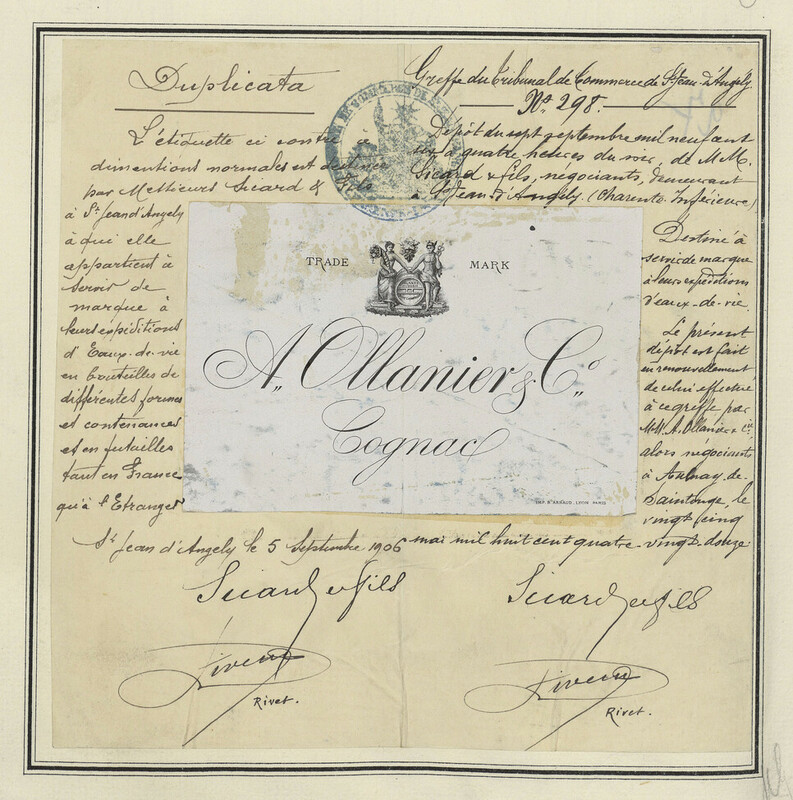 Duplicata
L'étiquette ci contre à
dimentions normales est destinée
par Messieurs Sicard & Fils
à St Jean d'Angely
à qui elle
appartient à
servir de
marque à
leurs expéditions
d'Eaux-de-vie
en bouteilles de
differentes formes
et contenances
et en futailles
tant en France
qu'à l'Etranger
St Jean d'Angely le 5 Septembre 1906
Sicard et fils
Rivet.
Greffe du Tribunal de Commerce de St Jean d'Angely
No 298.
Dépôt du sept septembre mil neuf cent
six à quatre heures du soir, de MM.
Sicard & fils, négociants, demeurant
à St Jean d'Angely. (Charente Inférieure)
Destiné à
servir de marque
à leurs expéditions
d'eaux-de-vie.
Le présent
dépôt est fait
en renouvellement
de celui effectué
à ce greffe par
MM. A. Ollanier & Cie,
alors négociants
à Aulnay-de-
Saintonge, le
vingt cinq
mai mil huit cent quatre-vingt-douze
Sicard et fils
Rivet.
TRADE MARK
A. Ollanier & Co.
Cognac
PARIS